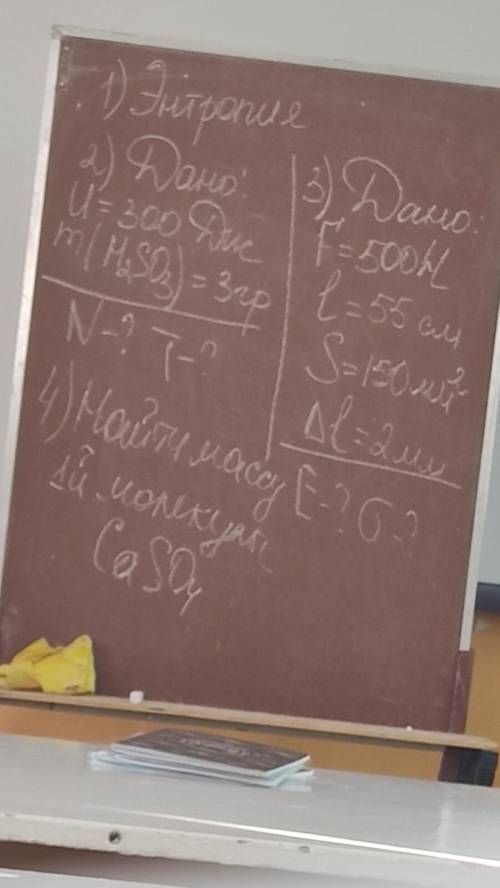 1) Энтропия
2) Дано:
U = 300 Дж
m(H₂SO₃) = 3гр
N-? T-?
3) Дано:
F = 500Н
l = 55 см
S = 150 мм²
Δl = 2 мм
E-? σ-?
4) Найти массу
1й молекулы
CaSO₄